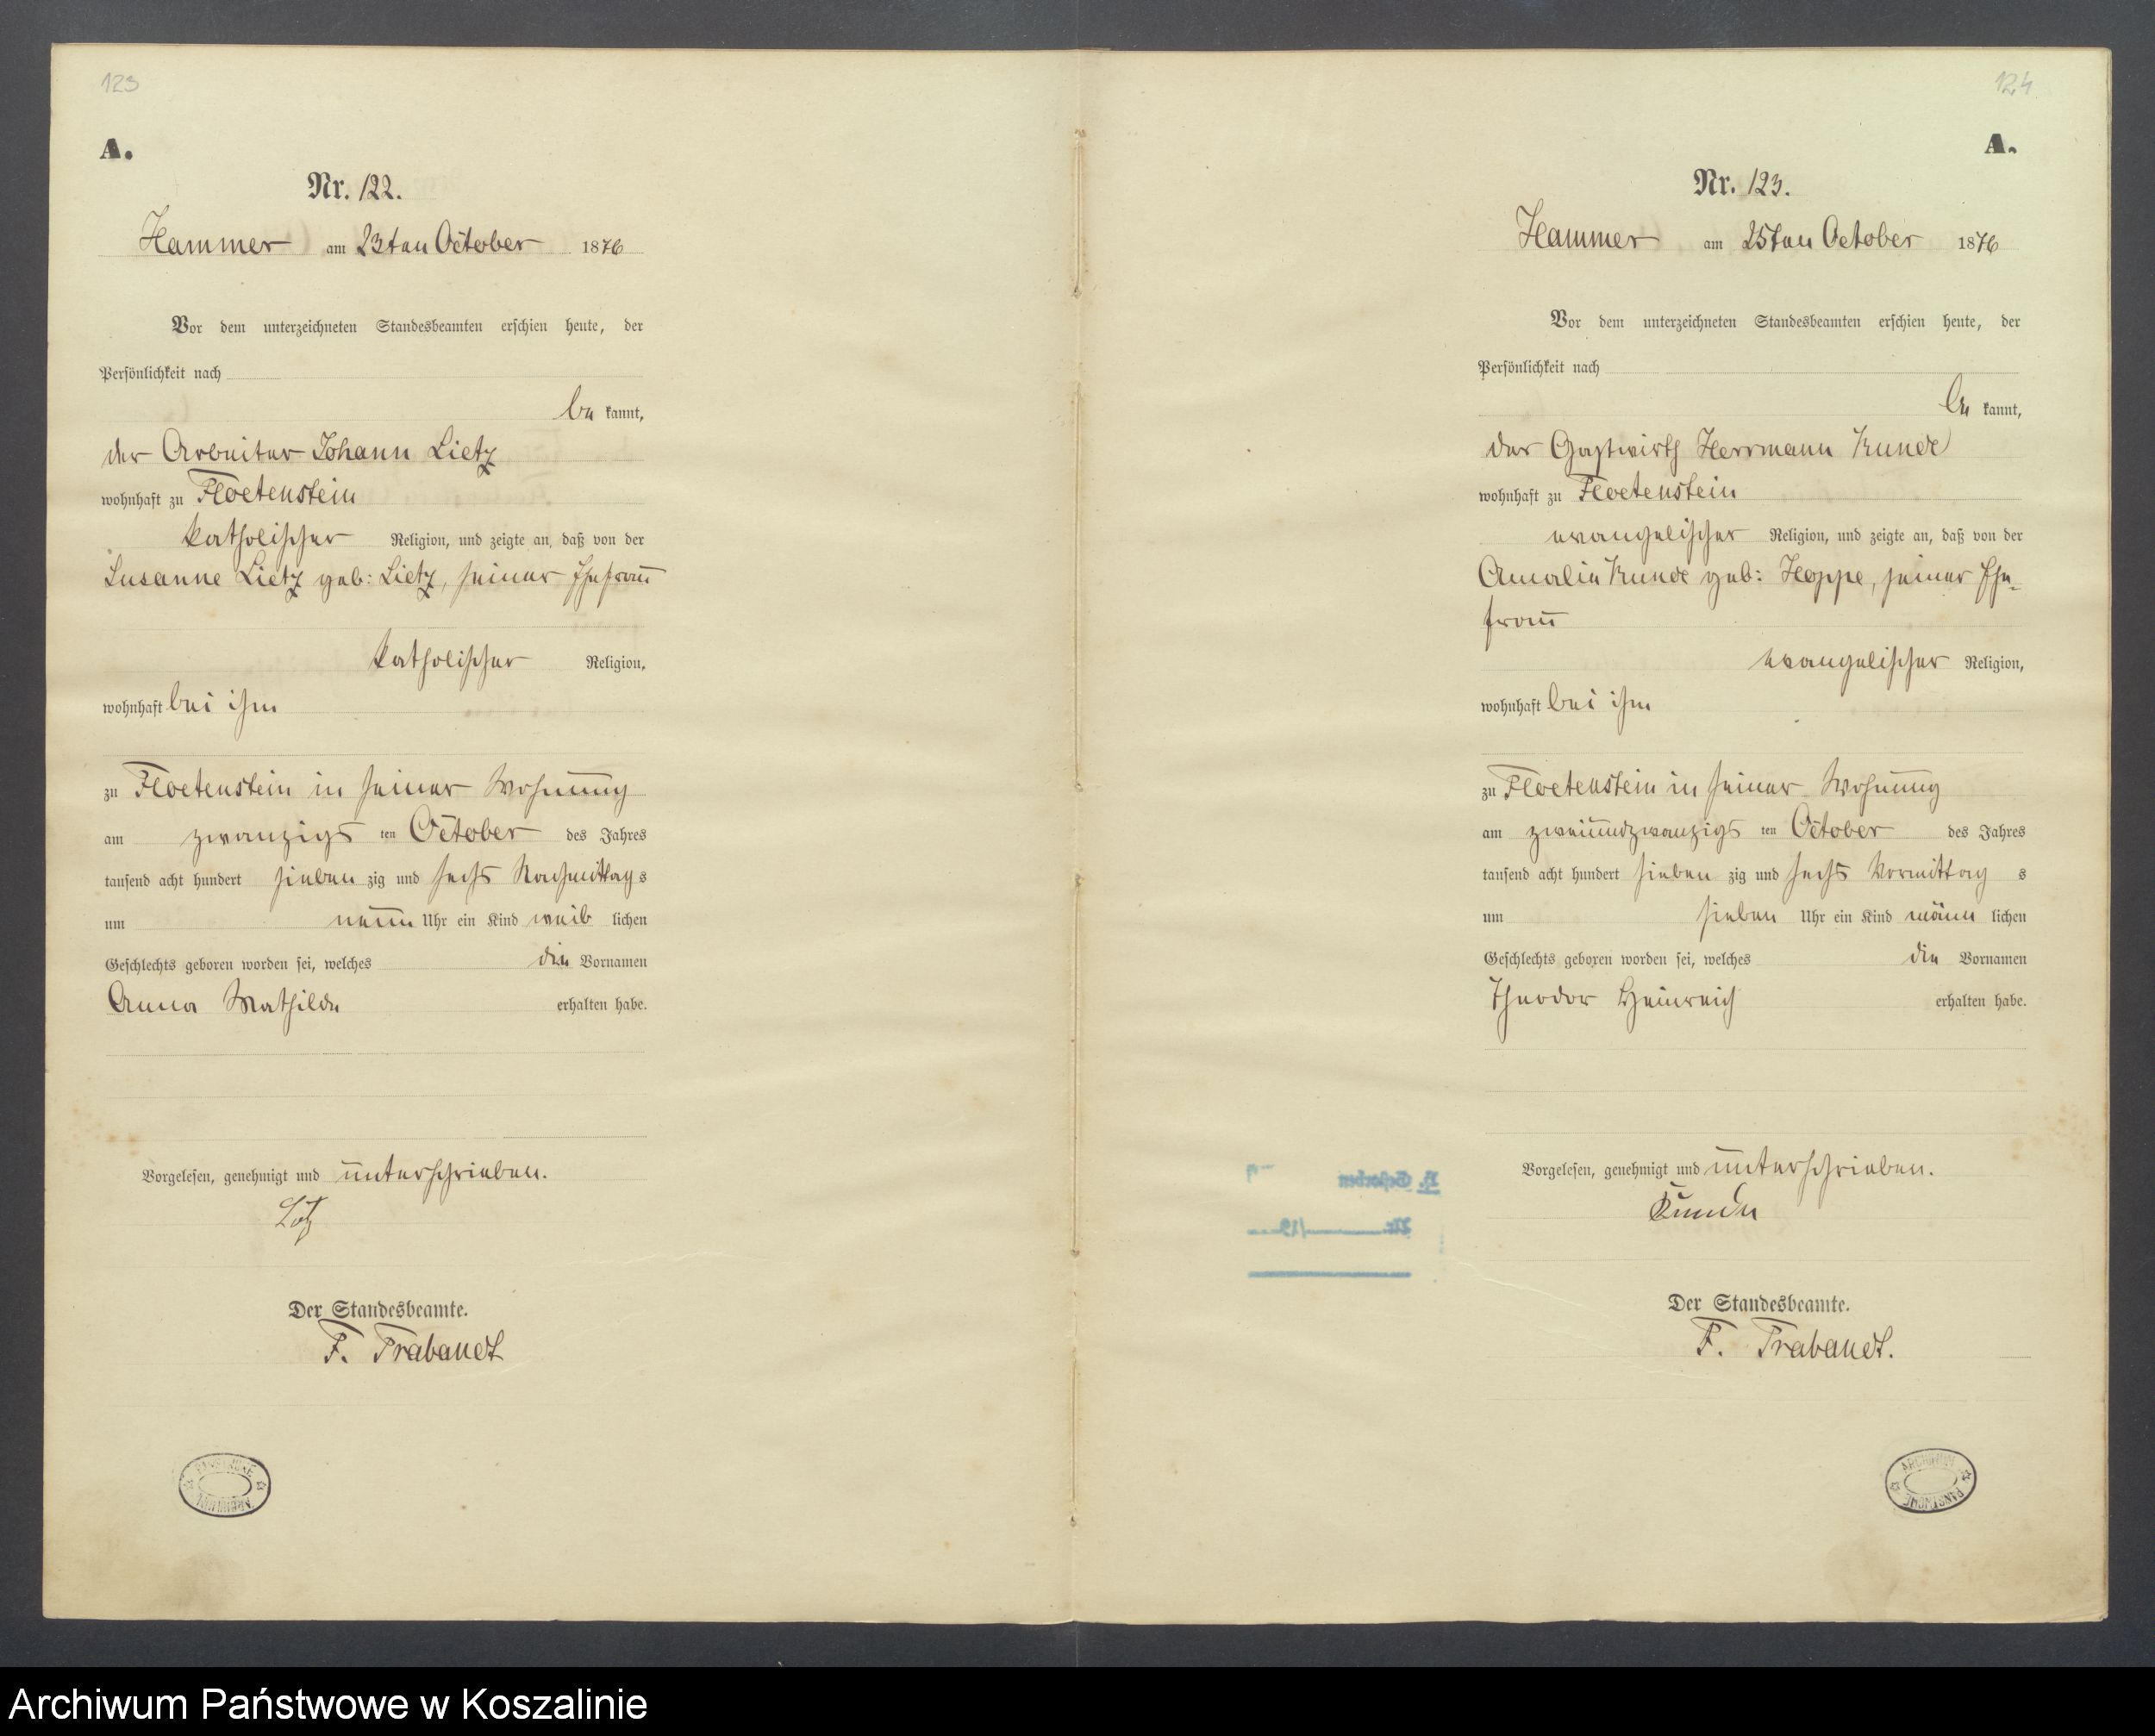 123
A.
Nr. 122.
Hammer am 23ten October 1876
Vor dem unterzeichneten Standesbeamten erschien heute, der
Persönlichkeit nach
be kannt,
der Arbeiter Johann Lietz
wohnhaft zu Floetenstein
katholischer Religion, und zeigte an, daß von der
Susanne Lietz geb: Lietz, seiner Ehefrau
katholischer Religion,
wohnhaft bei ihm
zu Floetenstein in seiner Wohnung
am zwanzigs ten October des Jahres
tausend acht hundert sieben zig und sechs Nachmittag s
um neun Uhr ein Kind weib lichen
Geschlechts geboren worden sei, welches die Vornamen
Anna Mathilde erhalten habe.
Vorgelesen, genehmigt und unterschrieben.
Der Standesbeamte.
F. Trabandt
124
A.
Nr. 123.
Hammer am 25ten October 1876
Vor dem unterzeichneten Standesbeamten erschien heute, der
Persönlichkeit nach
be kannt,
der Gastwirth Herrmann Kunde
wohnhaft zu Floetenstein
evangelischer Religion, und zeigte an, daß von der
Amalie Kunde geb: Hoppe, seiner Ehe-
frau
evangelischer Religion,
wohnhaft bei ihm
zu Floetenstein in seiner Wohnung
am zweiundzwanzigs ten October des Jahres
tausend acht hundert sieben zig und sechs Vormittag s
um sieben Uhr ein Kind männ lichen
Geschlechts geboren worden sei, welches die Vornamen
Theodor Heinreich erhalten habe.
Vorgelesen, genehmigt und unterschrieben.
Kunde
Der Standesbeamte.
F. Trabandt.
ARCHIWUM PAŃSTWOWE
Archiwum Państwowe w Koszalinie